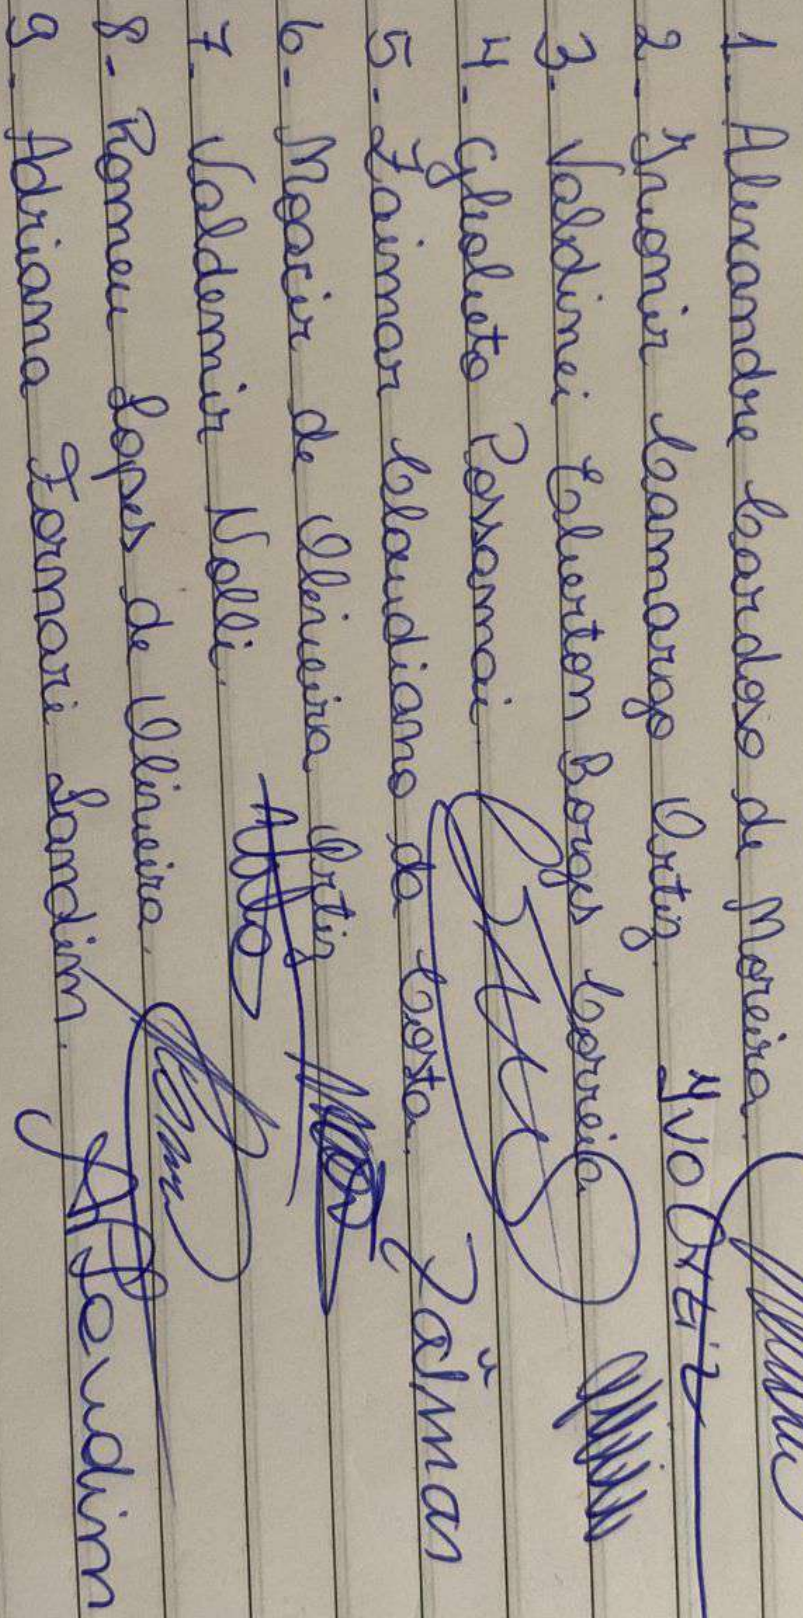 1- Alexandre Cardoso de Moreira
2- Ivonir Camargo Ortiz. Ivo Ortiz
3- Valdinei Cleverton Borges Correia
4- Possamai
5- Zaimar Claudiano da Costa. Zaimar
6- Moacir de Oliveira Ortiz
7- Valdemir Nolli.
8- Romeu Lopes de Oliveira.
9- Adriana Fornari Landim. Landim